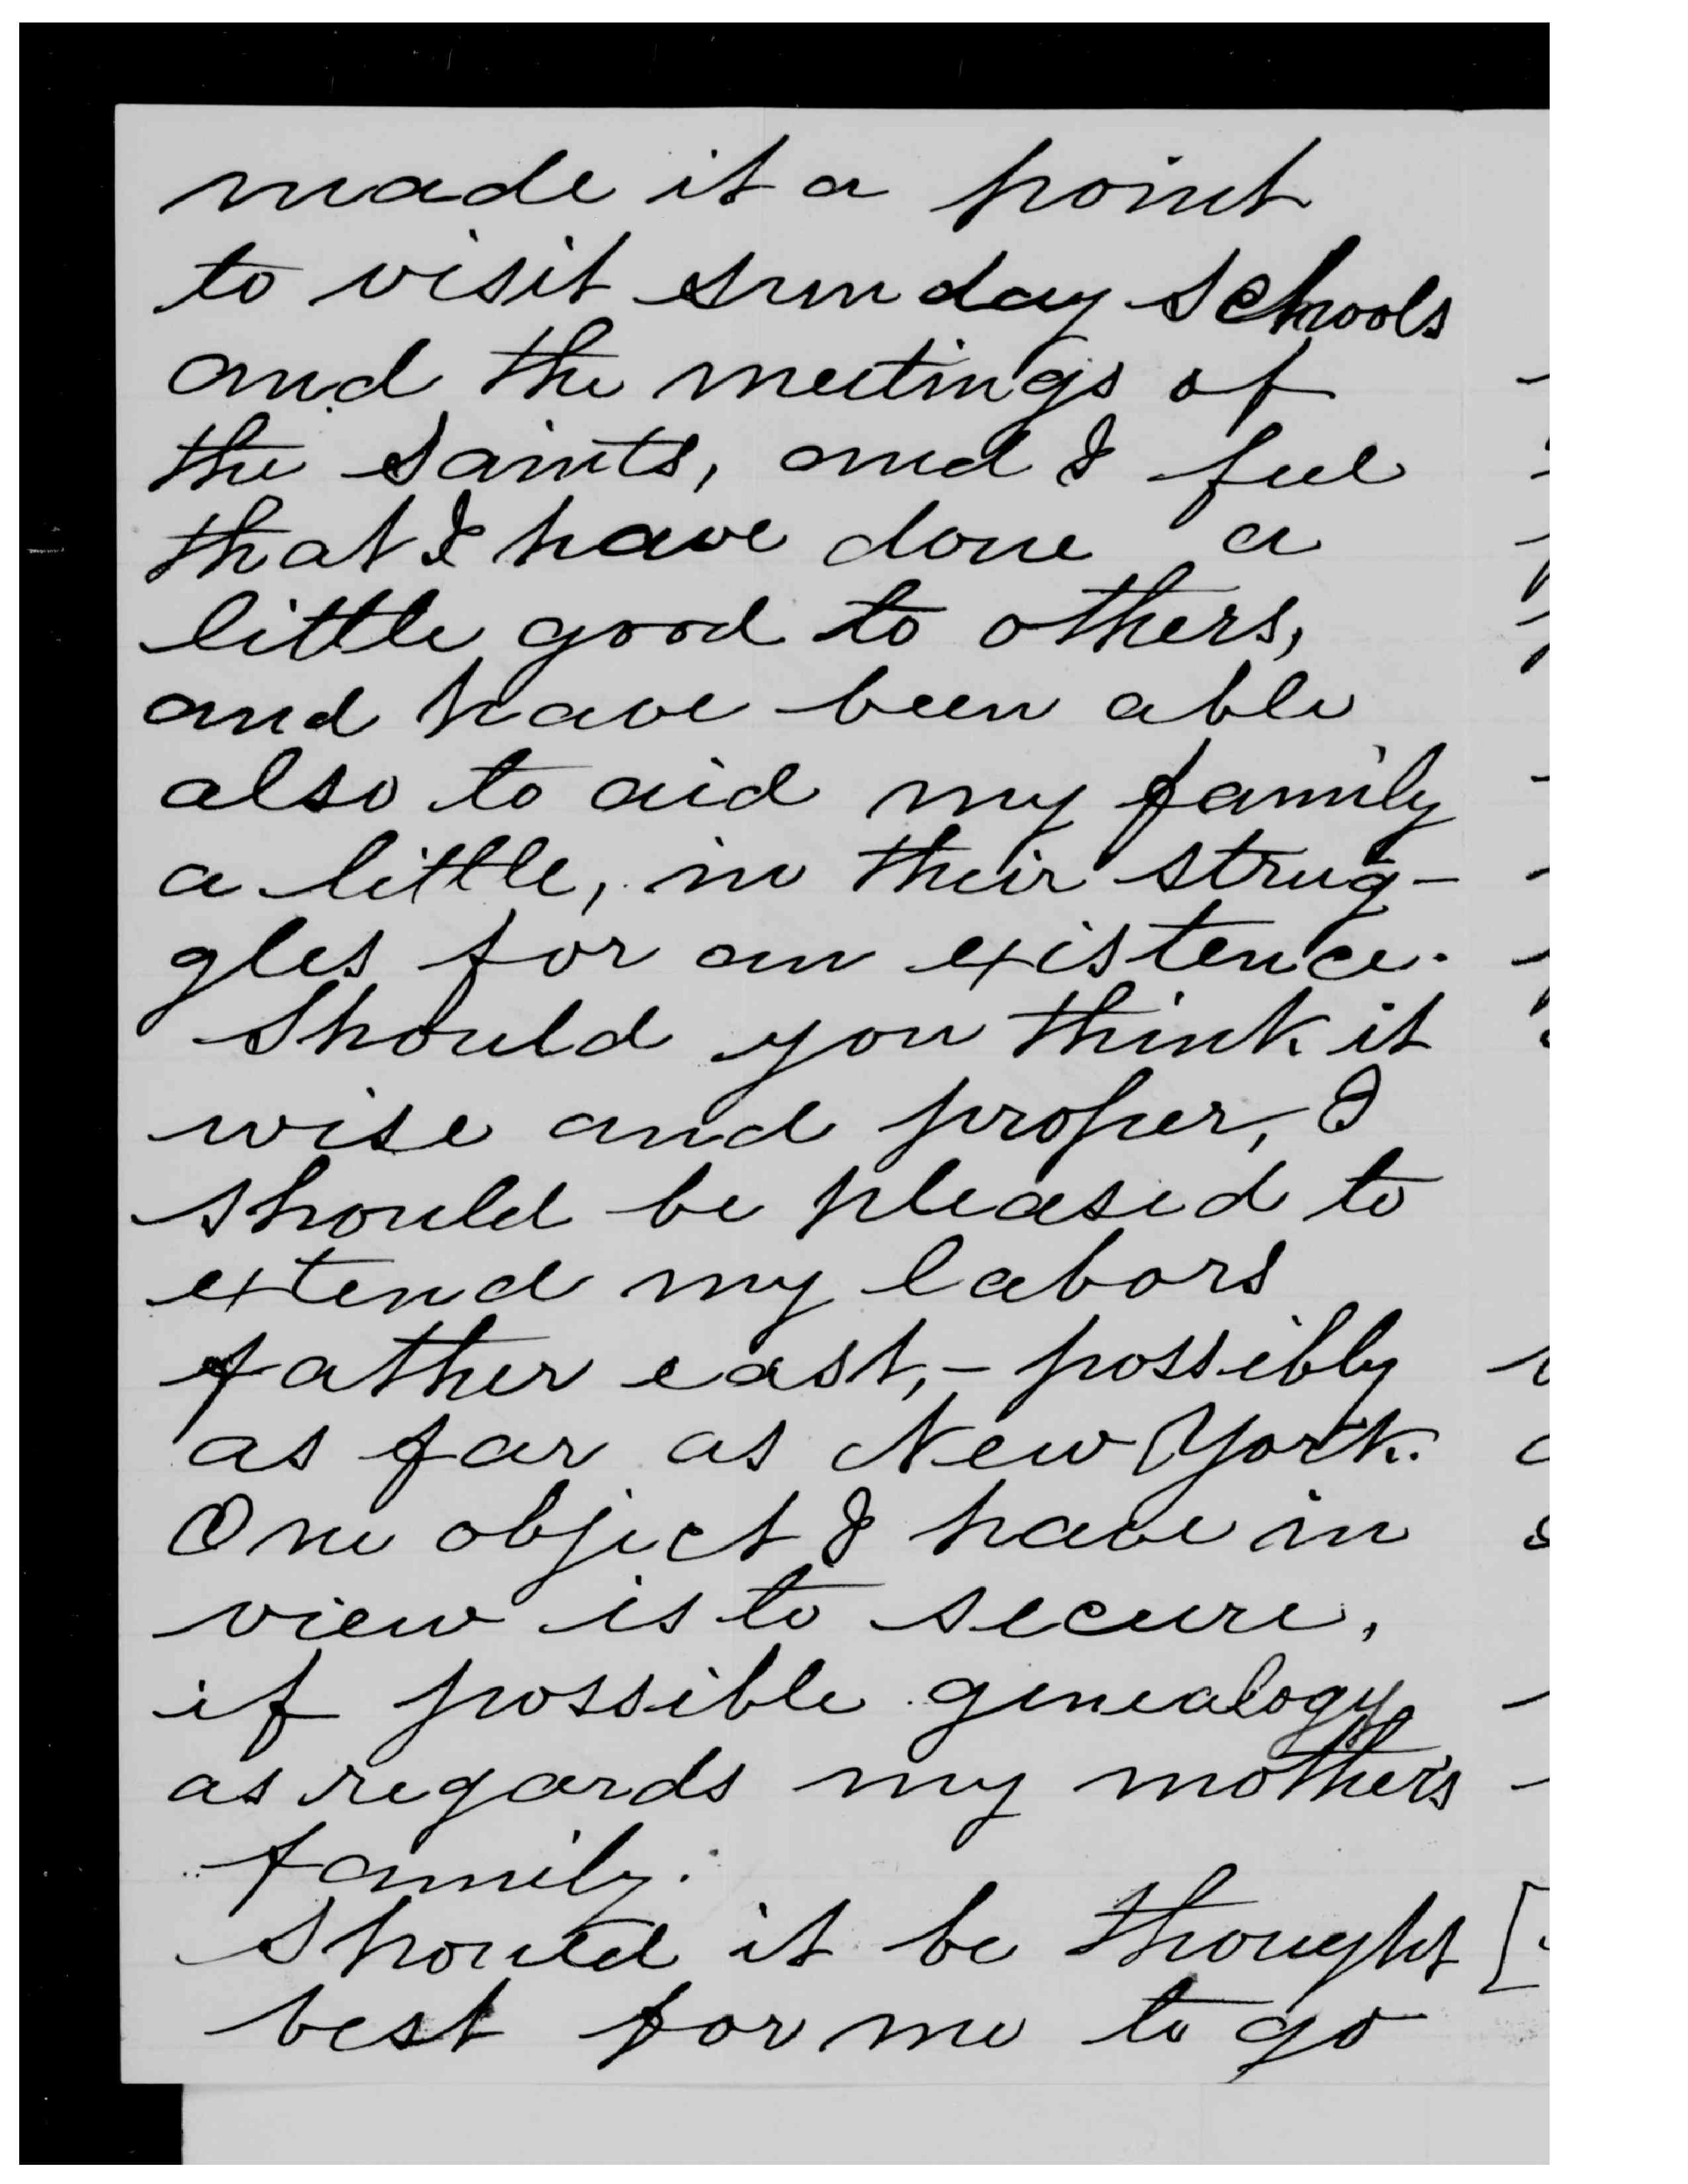 made it a point
to visit sunday schools
and the meetings of
the saints, and I feel
that I have done a
little good to others,
and have been able
also to aid my family
a little, in their strug-
gles for an existence.
Should you think it
wise and proper, I
should be pleased to
extend my labors
father east, - possibly
as far as New York.
One object I have in
view is to secure,
if possible genealogy
as regards my mother's
family.
Should it be thought
best for me to go